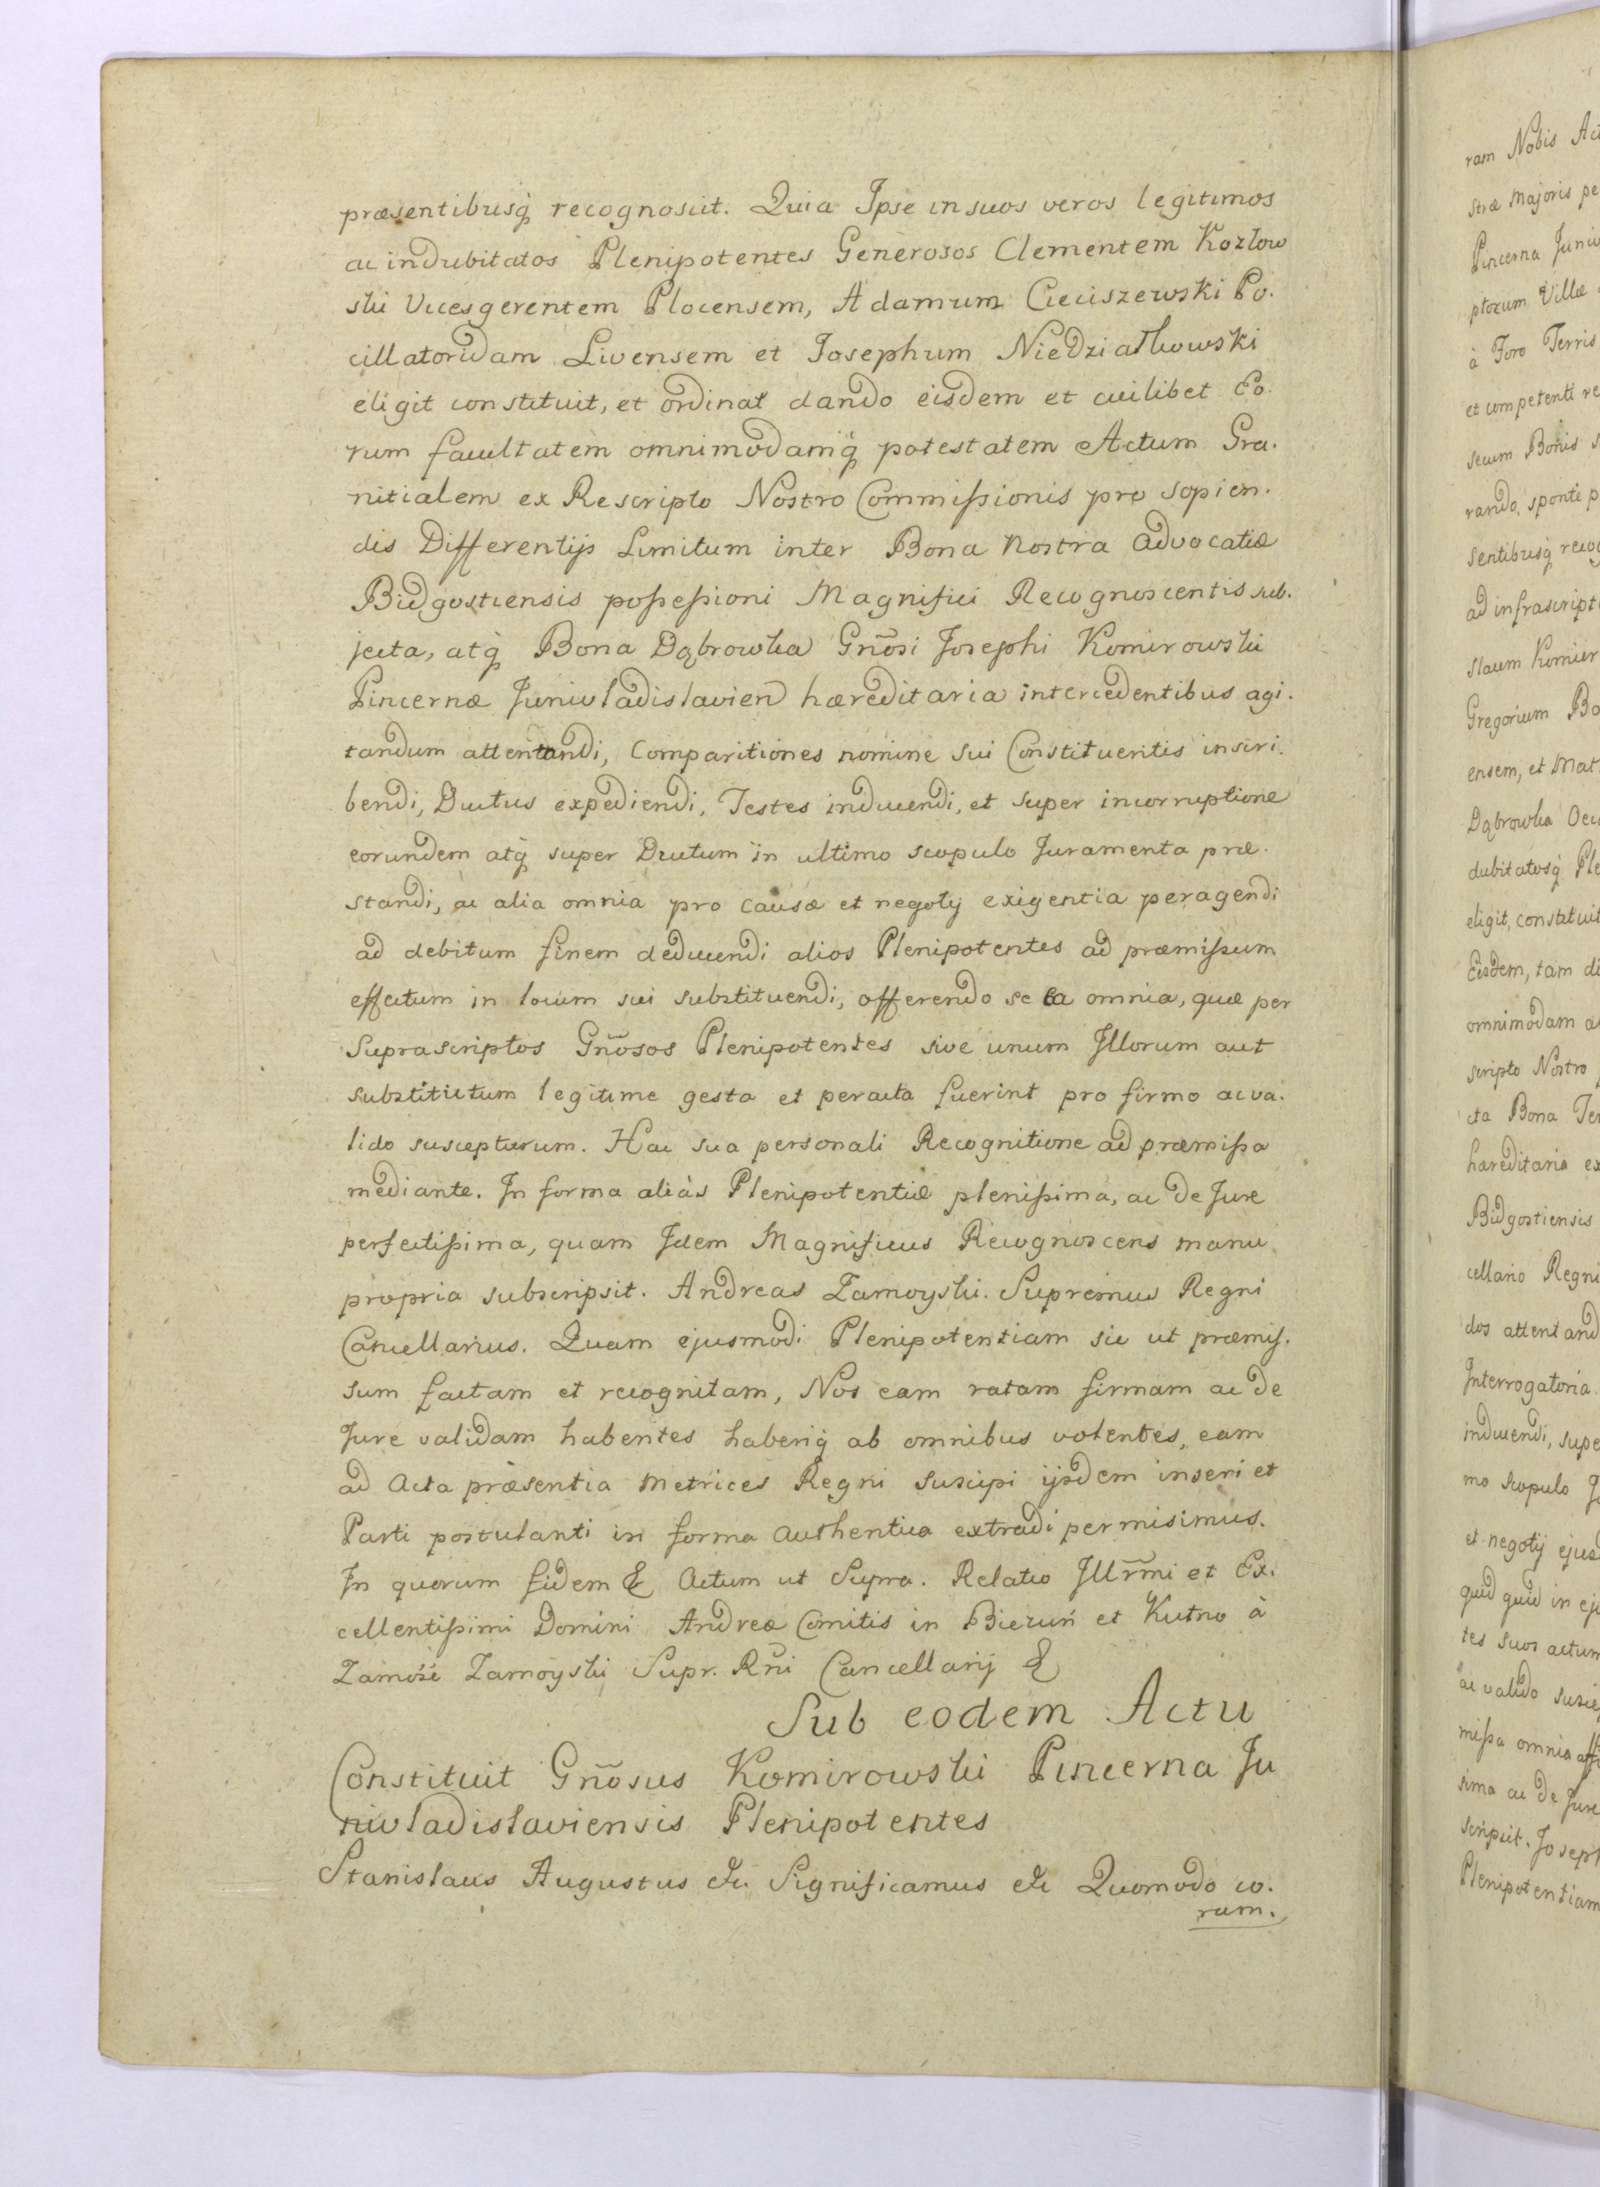 præsentibusq́ recognoscit. Quia Ipse in suos veros legitimos
ac indubitatos Plenipotentes Generosos Clementem Kozłow
ski Vicesgerentem Plocensem, Adamum Cieciszewski Po.
cillatoridam Livensem et Josephum Niedziałkowski
eligit constituit, et ordinat dando eisdem et cuilibet Eo.
rum facultatem omnimodamq́ potestatem Actum Gra.
nitialem ex Rescripto Nostro Commissionis pro sopien.
dis Differentijs Limitum inter Bona Nostra Advocatiæ
Bidgostiensis possessioni Magnifici Recognoscentis sub.
jecta, atq́ Bona Dąbrowka Gñosi Josephi Komirowski
Pincernæ Junivladislavien hæreditaria intercedentibus agi.
tandum attentandi, Comparitiones nomine sui Constituentis inscri.
bendi, Ductus expediendi, Testes inducendi, et super incorruptione
eorundem atq́ super Ductum in ultimo scopulo Juramenta præ.
standi, ac alia omnia pro causæ et negotÿ exigentia peragendi
ad debitum finem deducendi alios Plenipotentes ad præmissum
effectum in locum sui substituendi, offerendo se ea omnia, quæ per
Suprascriptos Gñosos Plenipotentes sive unum Illorum aut
substitutum legitime gesta et peracta fuerint pro firmo ac va.
lido suscepturum. Hac sua personali Recognitione ad præmissa
mediante. In forma aliàs Plenipotentiæ plenissima, ac de Jure
perfectissima, quam Idem Magnificus Recognoscens manu
propria subscripsit. Andreas Zamoyski. Supremus Regni
Cancellarius. Quam ejusmodi Plenipotentiam sic ut præmis.
sum factam et recognitam, Nos eam ratam firmam ac de
Jure validam habentes haberiq́ ab omnibus volentes, eam
ad Acta præsentia Metrices Regni suscipi ijsdem inseri et
Parti postulanti in forma authentica extradi permisimus.
In quorum fidem & Actum ut Supra. Relatio Illr̃mi et Ex.
cellentissimi Domini Andreæ Comitis in Bieżuń et Kutno à
Zamoście Zamoyski Supr. Rñi Cancellarij &
Sub eodem Actu
Constituit Gñosus Komirowski Pincerna Ju
nivladislaviensis Plenipotentes
Stanislaus Augustus &c. Significamus &c Quomodo co.
ram.
ram Nobis
stræ Majoris
Pincerna
ptorum Villæ
à Foro Terris
et competenti
secum Bonis
rando, sponte
sentibusq́
ad infrascript
slaum Komier
Gregorium
ensem, et
Dąbrowka
dubitatosq́
eligit, constituit
Eisdem, tam
omnimodam
scripto Nostro
cta Bona
hæreditaria
Bidgostiensis
cellario Regni
dos attentand
Interrogatoria
inducendi,
mo scopulo
et negotÿ
quid quid in
tes suos actum
ac valido
missa omnia
sima ac de Jure
scripsit.
Plenipotentiam